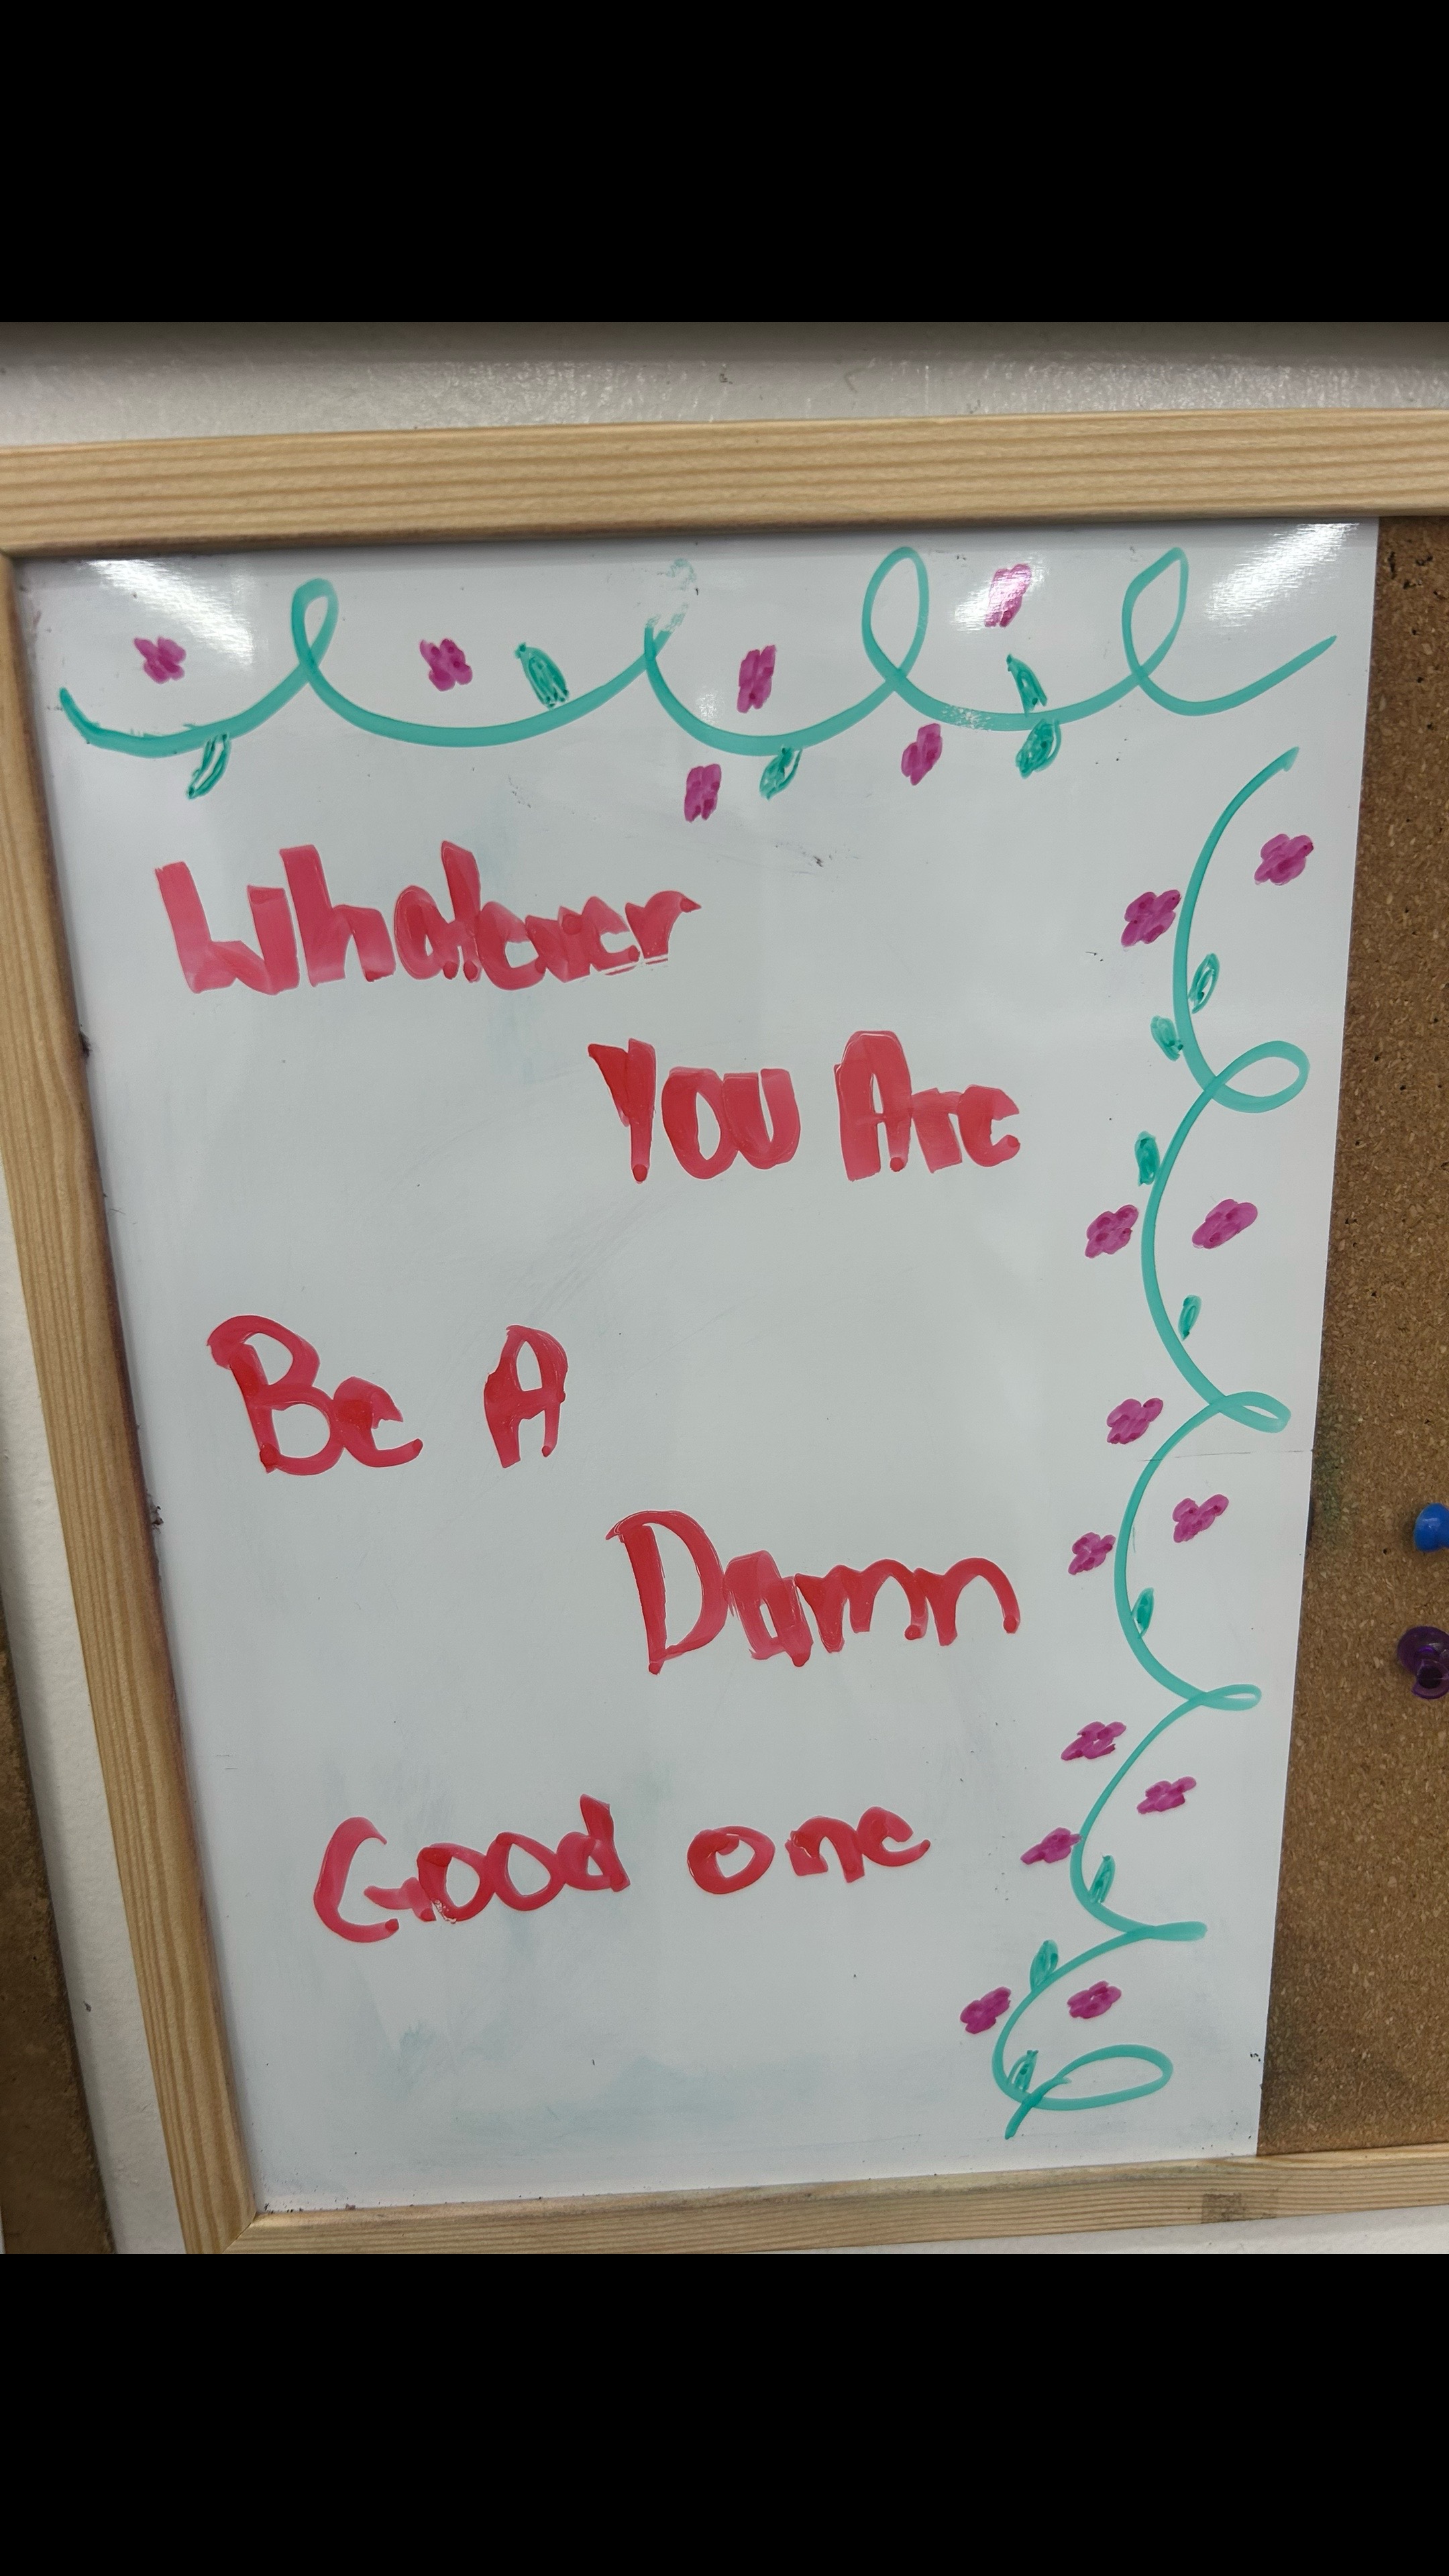 Whatever
You Are
Be A
Damn
Good one